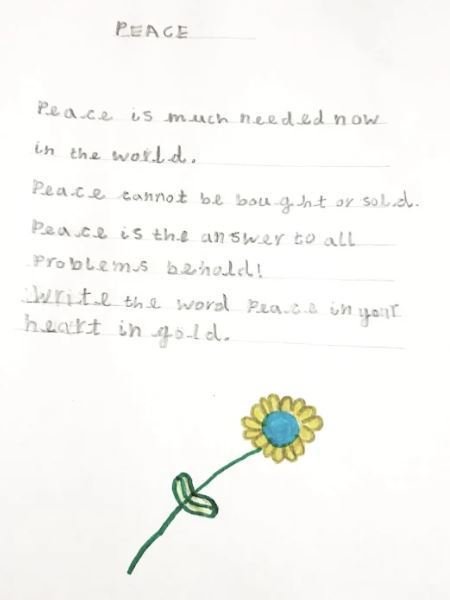 PEACE
Peace is much needed now
in the world.
Peace cannot be bought or sold.
Peace is the answer to all
Problems behold!
Write the word Peace in your
heart in gold.